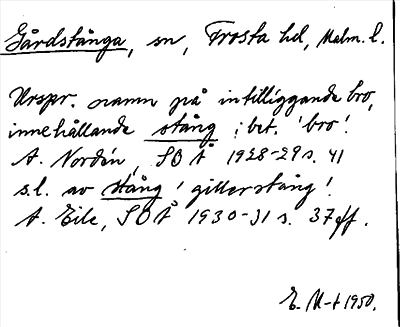 Gårdstånga, sn, Frosta hd, Malm. l.
Urspr. namn på intilliggande bro,
innehållande stång i bet. 'bro'.
A. Nordén, SOÅ 1928-29 s. 41
s.l. av stång 'gillerstång'.
A. Eile, SOÅ 1930-31 s. 37 ff.
E. M-t 1950.